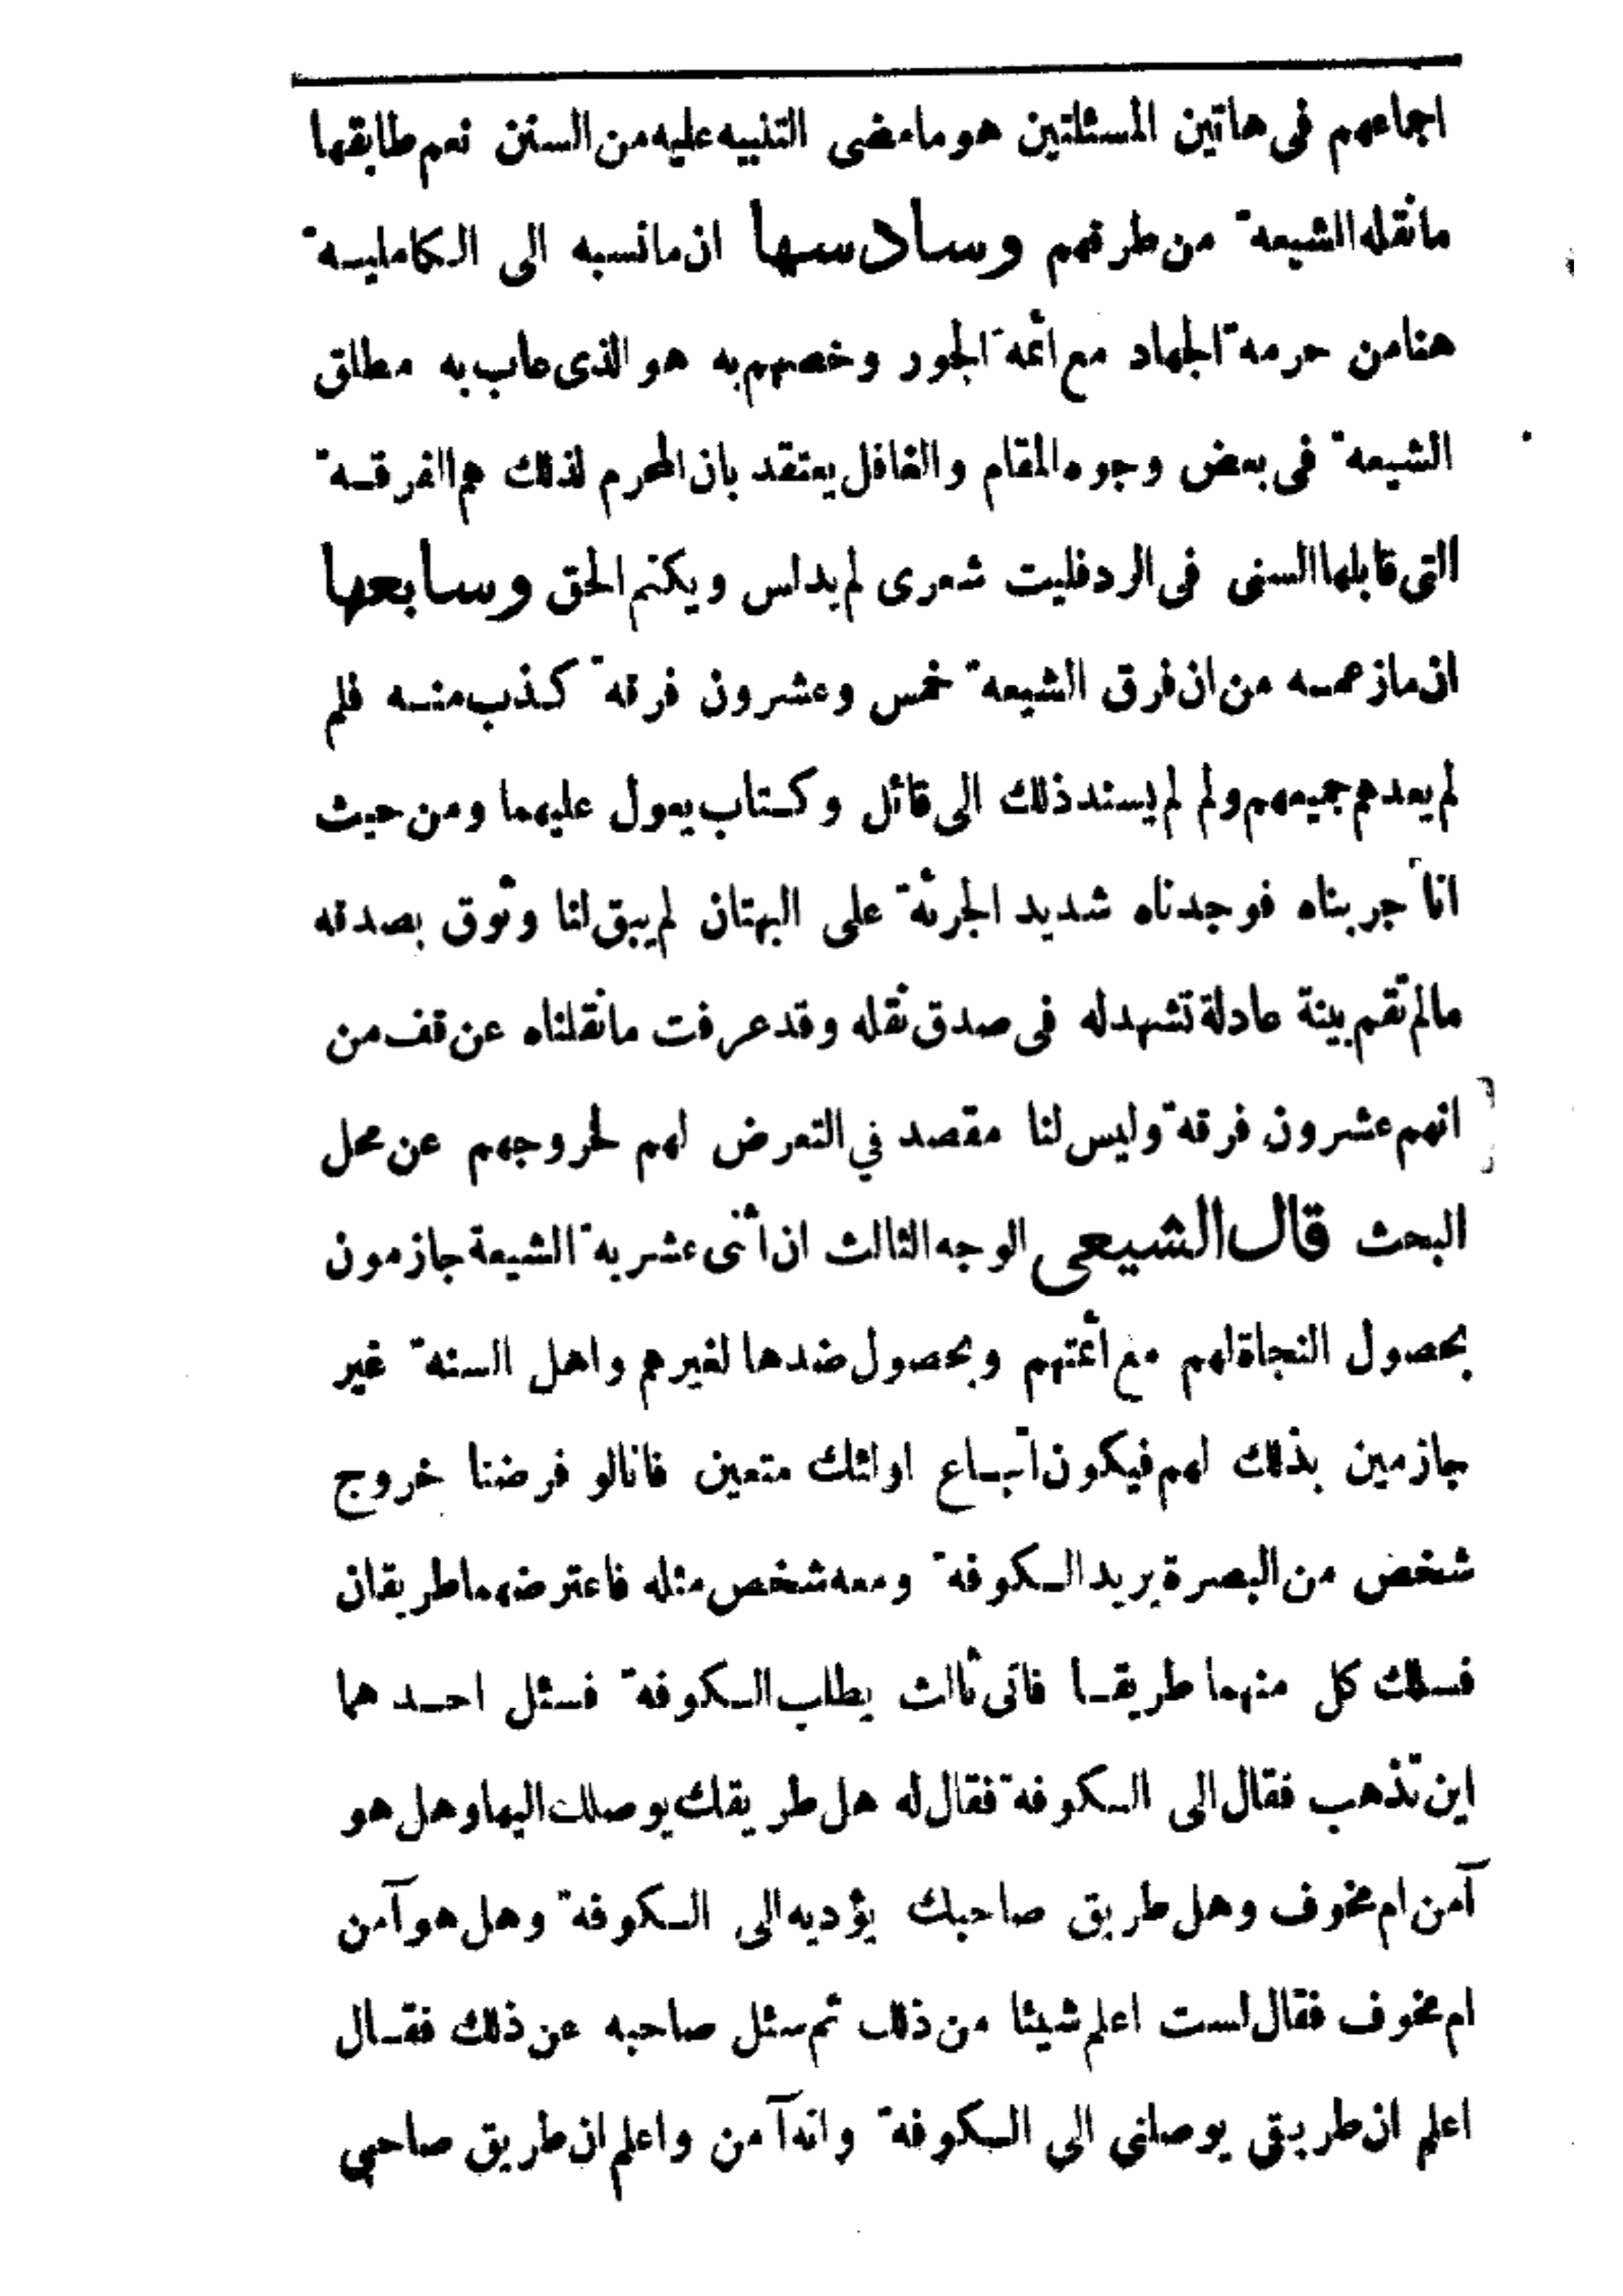 اجماعهم فى هاتين المسئلتين هو ما مضى التنبيه عليه من السنن نعم طابقها
ما نقله الشيعة من طرقهم وسادسها ان ما نسبه الى الكاملية
هنا من حرمة الجهاد مع ائمة الجور وخصهم به هو الذى عاب به مطلق
الشيعة فى بعض وجوه المقام والغافل يعتقد بان المحرم لذلك هم الفرقة
التى قابلها السنى فى الرد فليت شعرى لم يدلس ويكتم الحق وسابعها
ان ما زعمه من ان فرق الشيعة خمس وعشرون فرقة كذب منه فلم
لم يعدهم جميعهم ولم لم يسند ذلك الى قائل وكتاب يعول عليهما ومن حيث
انا جربناه فوجدناه شديد الجرئة على البهتان لم يبق لنا وثوق بصدقه
مالم تقم بينة عادلة تشهد له فى صدق نقله وقد عرفت ما نقلناه عن قف من
انهم عشرون فرقة وليس لنا مقصد في التعرض لهم لخروجهم عن محل
البحث قال الشيعى الوجه الثالث ان اثنى عشرية الشيعة جازمون
بحصول النجاة لهم مع ائمتهم وبحصول ضدها لغيرهم واهل السنة غير
جازمين بذلك لهم فيكون اتباع اولئك متعين فانا لو فرضنا خروج
شخص من البصرة يريد الكوفة ومعه شخص مثله فاعترضهما طريقان
فسلك كل منهما طريقا فاتى ثالث يطلب الكوفة فسئل احدهما
اين تذهب فقال الى الكوفة فقال له هل طريقك يوصلك اليها وهل هو
آمن ام مخوف وهل طريق صاحبك يؤديه الى الكوفة وهل هو آمن
ام مخوف فقال لست اعلم شيئا من ذلك ثم سئل صاحبه عن ذلك فقال
اعلم ان طريقى يوصلنى الى الكوفة وانه آمن واعلم ان طريق صاحبى